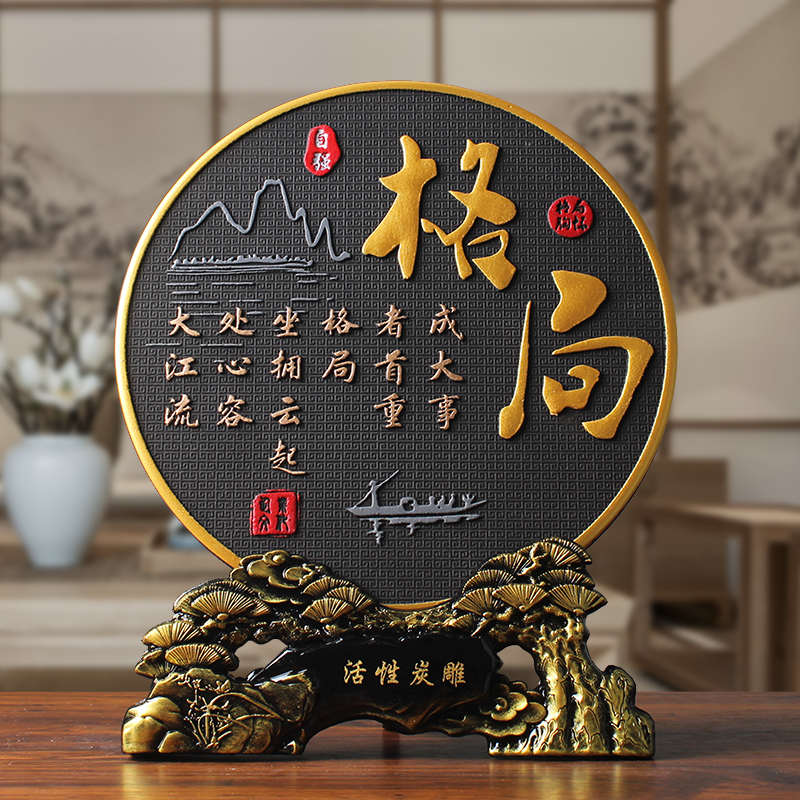 格局
成大事
者首重
格局
坐拥云起
处心容
大江流
自强
活性炭雕